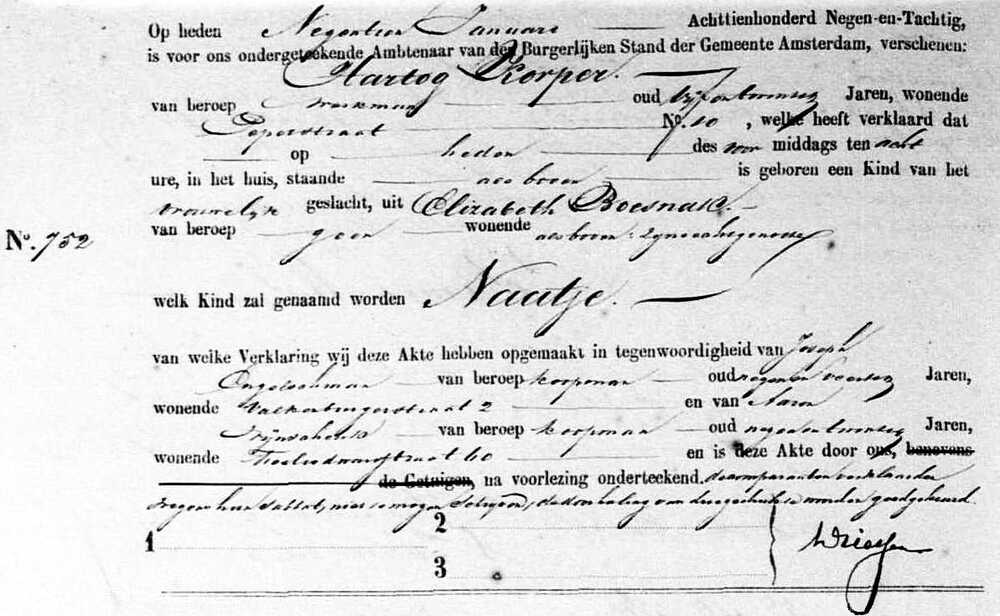 Op heden Negentien Januari Achttienhonderd Negen-en-Tachtig,
is voor ons ondergeteekende Ambtenaar van den Burgerlijken Stand der Gemeente Amsterdam, verschenen:
Hartog Korper.
van beroep werkman oud vijfentwintig Jaren, wonende
Peperstraat No. 10, welke heeft verklaard dat
op heden des voor middags ten acht
ure, in het huis, staande als boven is geboren een Kind van het
vrouwelijk geslacht, uit Elizabeth Boesnak.
van beroep geen wonende als boven zijne echtgenoote
No. 752
welk Kind zal genaamd worden Naatje.
van welke Verklaring wij deze Akte hebben opgemaakt in tegenwoordigheid van Joseph
Engelschman van beroep koopman oud negenenveertig Jaren,
wonende Valkenburgerstraat 2 en van Aaron
van beroep koopman oud negenentwintig Jaren,
wonende straat 60 en is deze Akte door ons, benevens
de Getuigen, na voorlezing onderteekend. de comparanten verklaarden
wegens hun Sabbat, niet te mogen schrijven, de doorhaling van drie gedrukte woorden goedgekeurd.
1
2
3